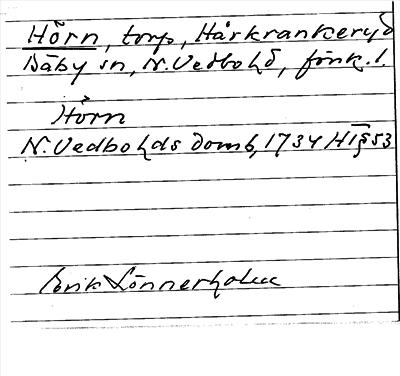 Hörn, torp, Hårkrankeryd
Säby sn, N. Vedbo hd, Jönk. l.
Hörn
N. Vedbo hds domb, 1734 HT § 53
Erik Lönnerholm